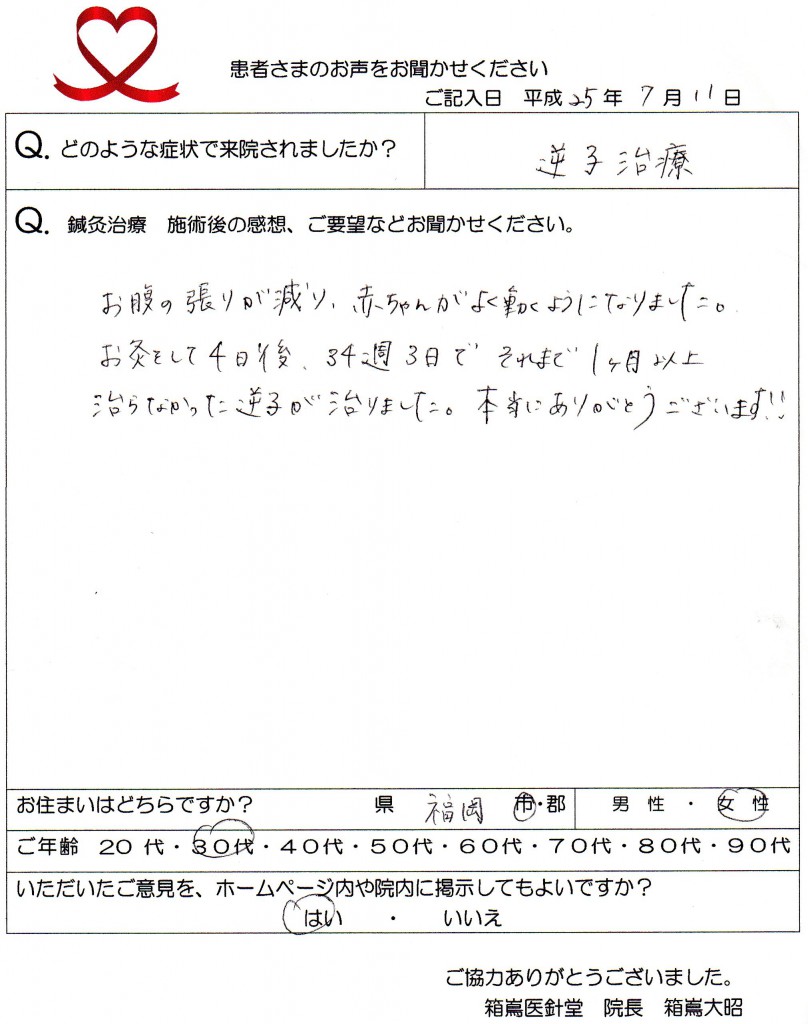 患者さまのお声をお聞かせください
ご記入日 平成25年 7月11日
Q. どのような症状で来院されましたか？
逆子治療
Q. 鍼灸治療 施術後の感想、ご要望などお聞かせください。
お腹の張りが減り、赤ちゃんがよく動くようになりました。
お灸をして4日後、34週3日で それまで1ヶ月以上
治らなかった逆子が治りました。本当にありがとうございます!!
お住まいはどちらですか？ 県 福岡 市・郡 男 性 ・ 女 性
ご年齢 20 代・30代・40代・50代・60代・70代・80代・90代
いただいたご意見を、ホームページ内や院内に掲示してもよいですか？
はい ・ いいえ
ご協力ありがとうございました。
箱嶌医針堂 院長 箱嶌大昭